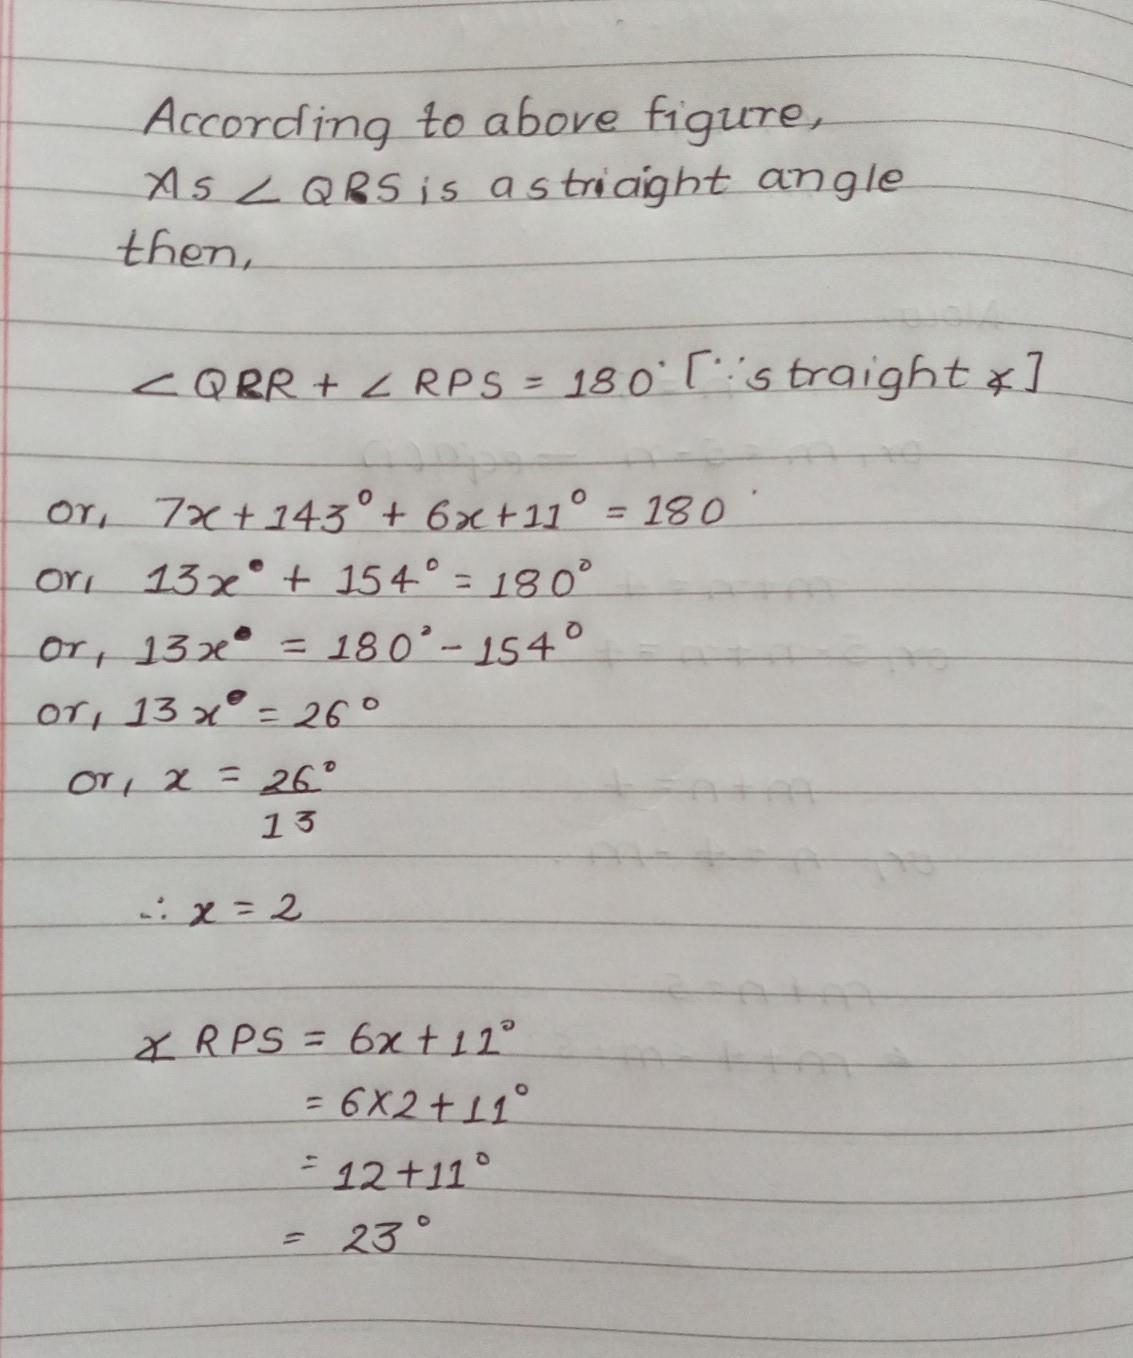 According to above figure,
As ∠ QRS is a striaight angle
then,
∠ QRR + ∠ RPS = 180° [∵ straight ∡]
or, 7x + 143° + 6x + 11° = 180°
or, 13x° + 154° = 180°
or, 13x° = 180° - 154°
or, 13x° = 26°
or, x = 26°
13
∴ x = 2
∡ RPS = 6x + 11°
= 6×2 + 11°
= 12 + 11°
= 23°